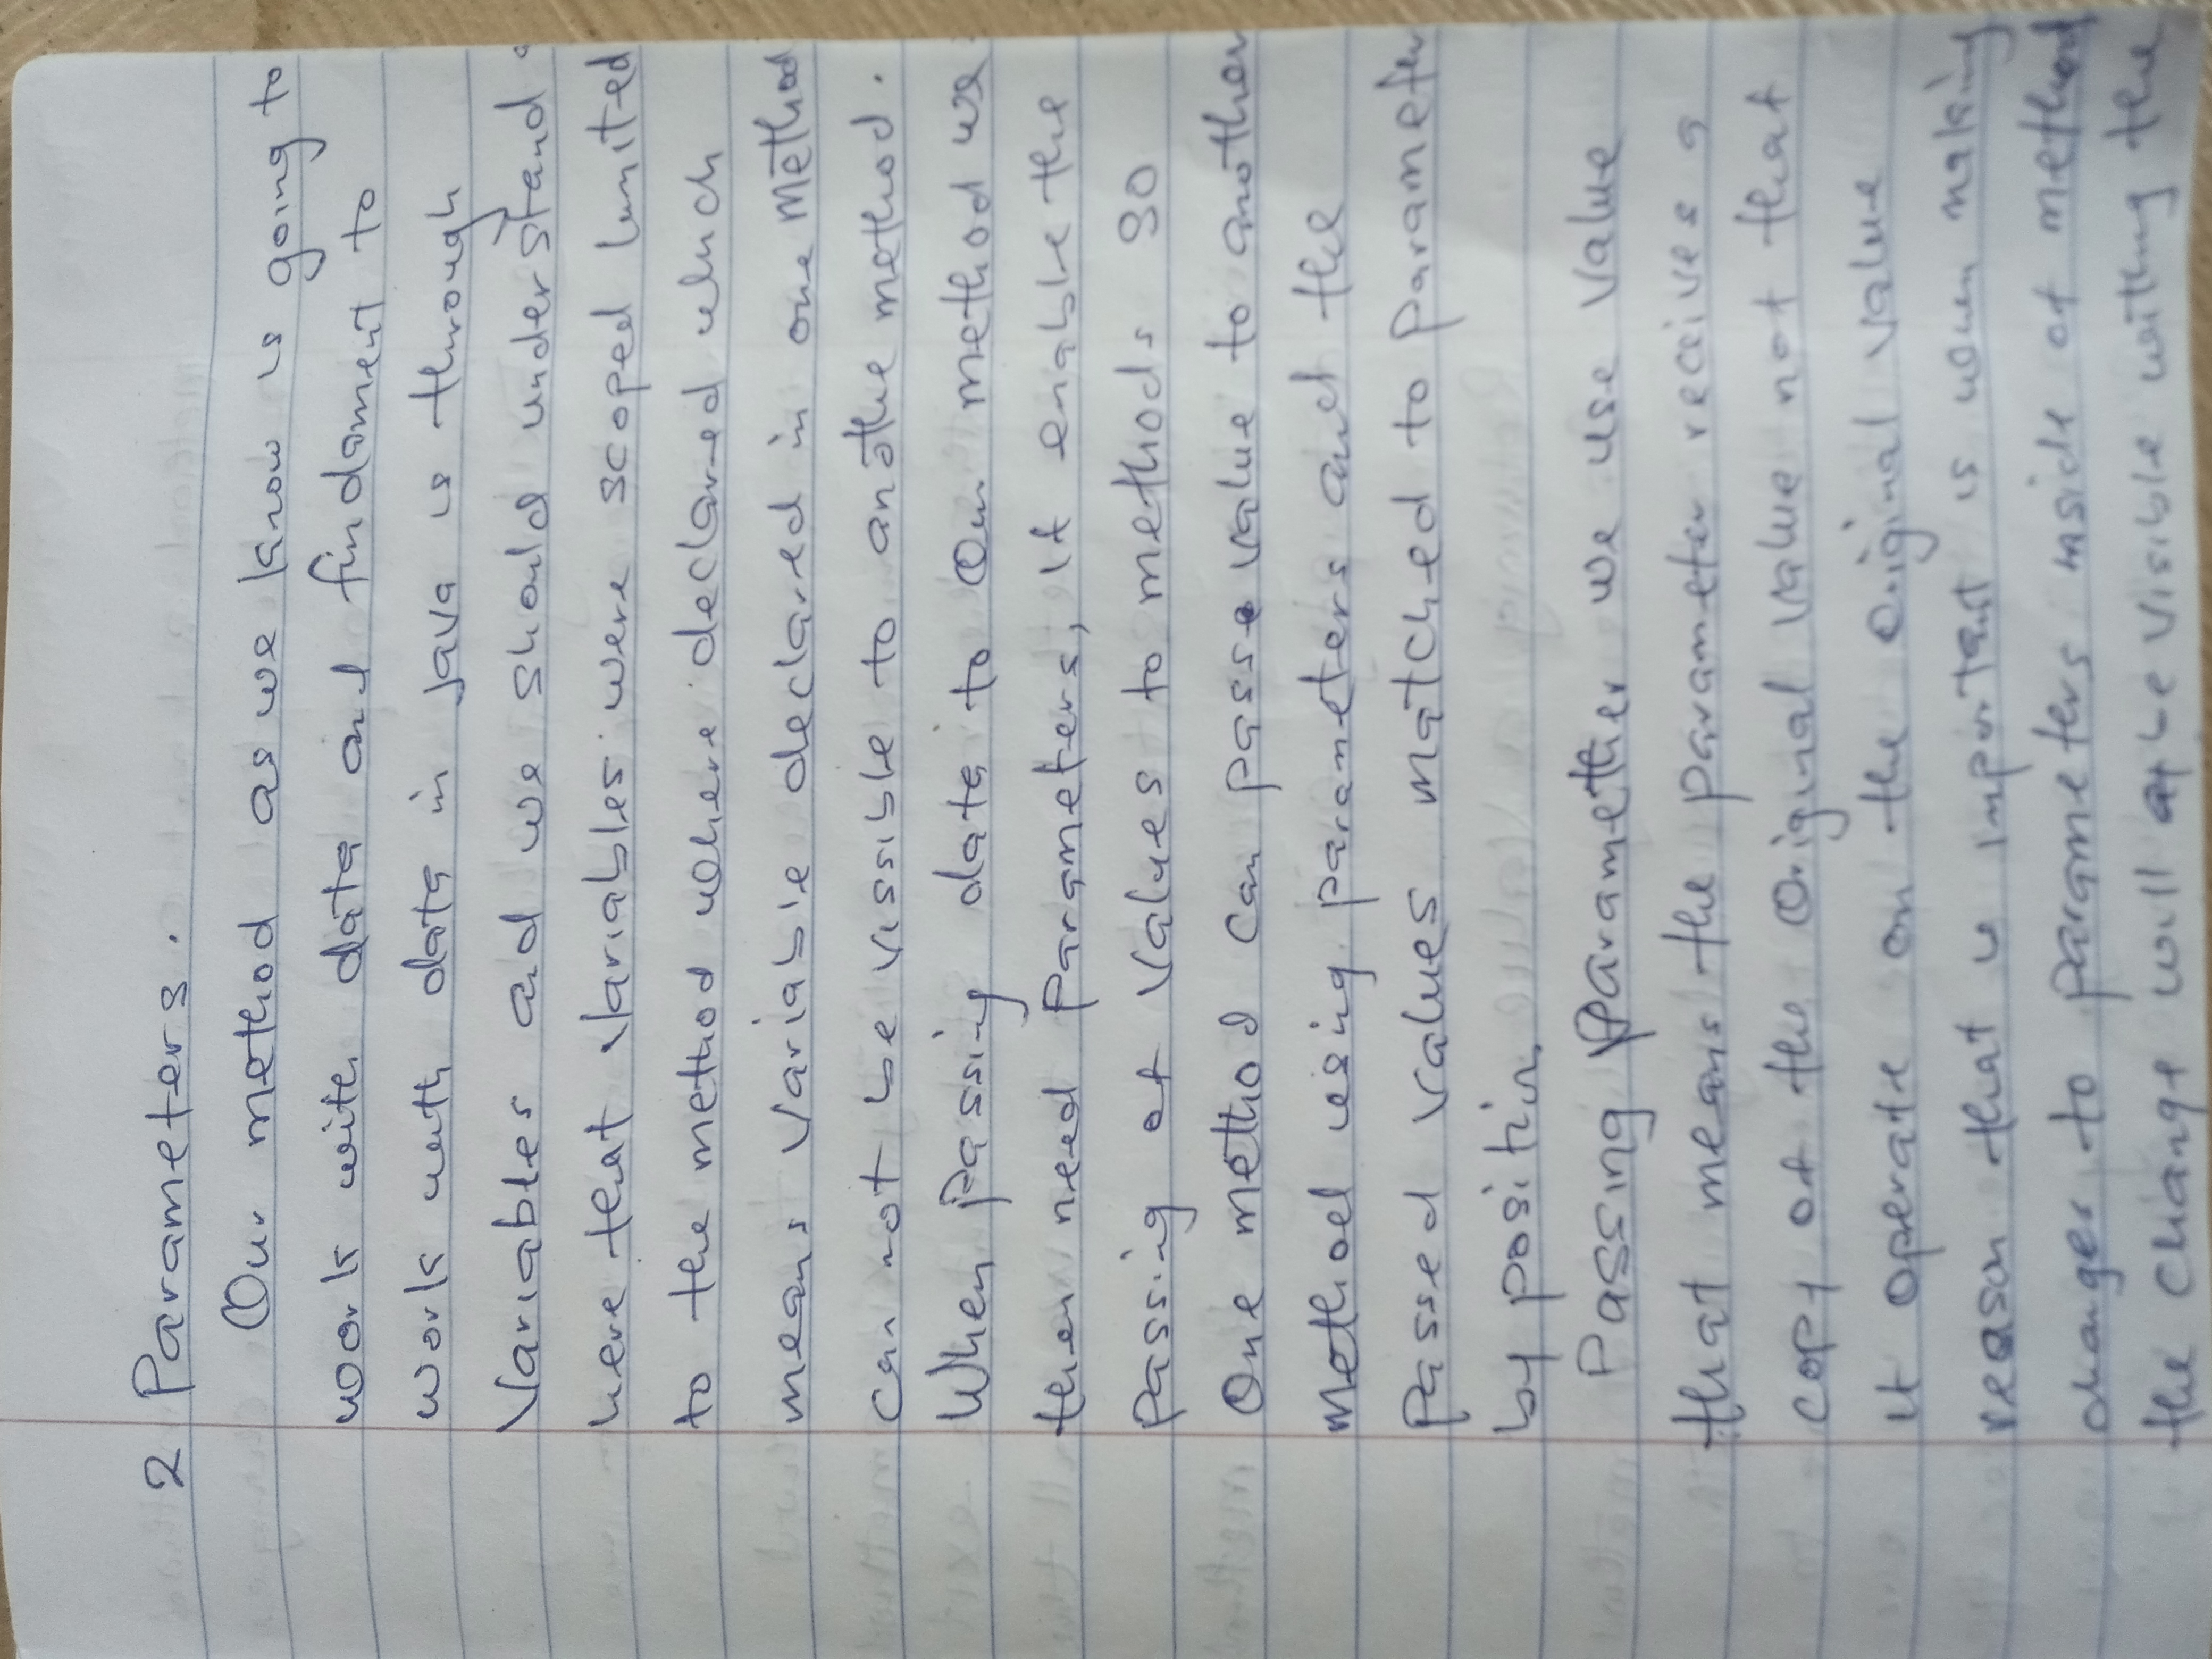 2 Parameters.
Our method as we know is going to
work with data and fundament to
work with data in Java is through
Variables and we should understand
here that Variables were scoped limited
to the method where declared which
means Variable declared in one method
can not be vissible to anothe method.
When passing data to Our method we
then need parameters, it enable the
passing of Values to methods so
One method can passe value to another
method using parameters and the
passed values matched to parameter
by position.
Passing parametter we use value
that means the parameter receives a
copy of the Original value not that
it operate on the original value
reason that is important is when making
changes to parameters inside of method
the change will be visible withing the